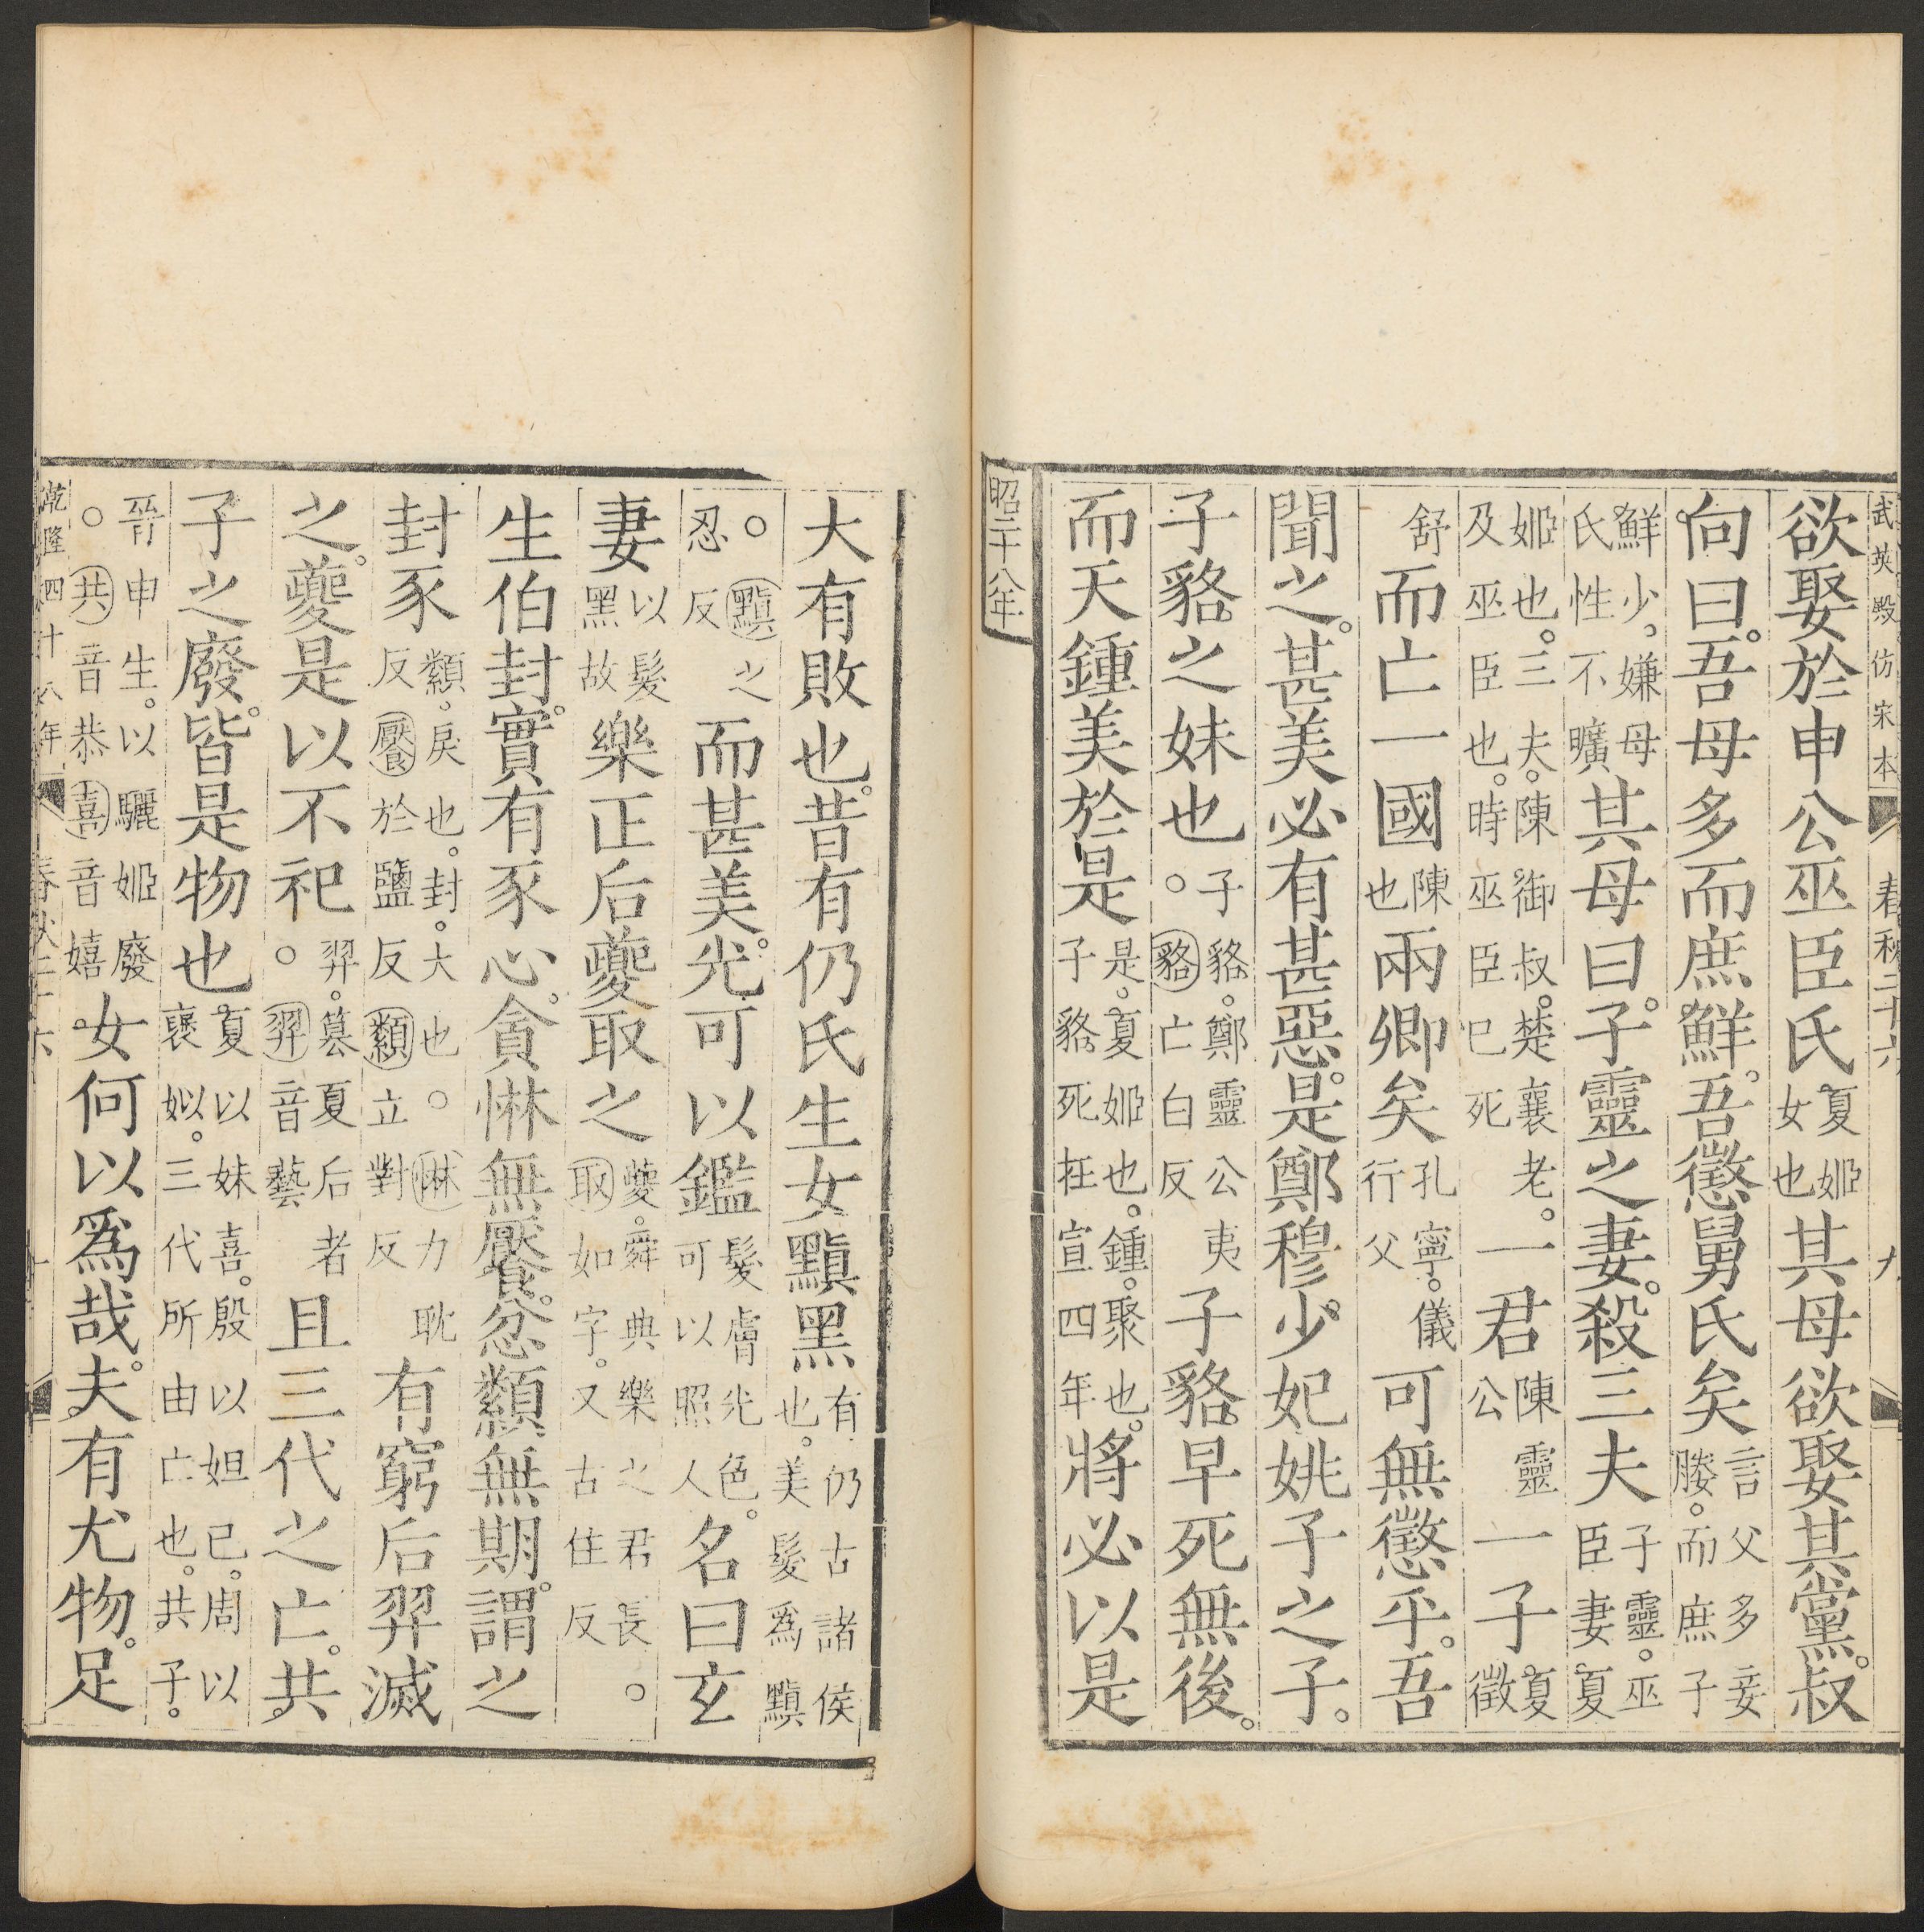 武英殿仿宋本 春秋二十六 九
欲娶於申公巫臣氏夏姬女也其母欲娶其黨。叔
向曰。吾母多而庶鮮。吾懲舅氏矣言父多妾媵。而庶子
鮮少。嫌母氏性不曠其母曰。子靈之妻。殺三夫子靈。巫臣妻。夏
姬也。三夫。陳御叔。楚襄老。及巫臣也。時巫臣已死一君陳靈公一子夏徵
舒而亡一國陳也兩卿矣孔寧。儀行父可無懲乎。吾
聞之。甚美必有甚惡。是鄭穆少妃姚子之子。
子貉之妹也子貉。鄭靈公夷○貉亡白反子貉早死無後。
而天鍾美於是是。夏姬也。鍾。聚也。子貉死在宣四年將必以是
昭二十八年
大有敗也。昔有仍氏生女黰黑有仍古諸侯也。美髮爲黰
○黰之忍反而甚美。光可以鑑髮膚光色。可以照人名曰玄
妻以髮黑故樂正后夔取之夔。舜典樂之君長。○取如字。又古住反
生伯封。實有豕心。貪惏無饜。忿纇無期。謂之
封豕纇。戾也。封。大也。○惏力耽反饜於鹽反纇立對反有窮后羿滅
之。夔是以不祀羿。簒夏后者○羿音藝且三代之亡。共
子之廢。皆是物也夏以妹喜。殷以妲己。周以褒姒。三代所由亡也。共子。
晉申生。以驪姬廢○共音恭喜音嬉女何以爲哉。夫有尤物。足
乾隆四十八年 春秋二十六 十